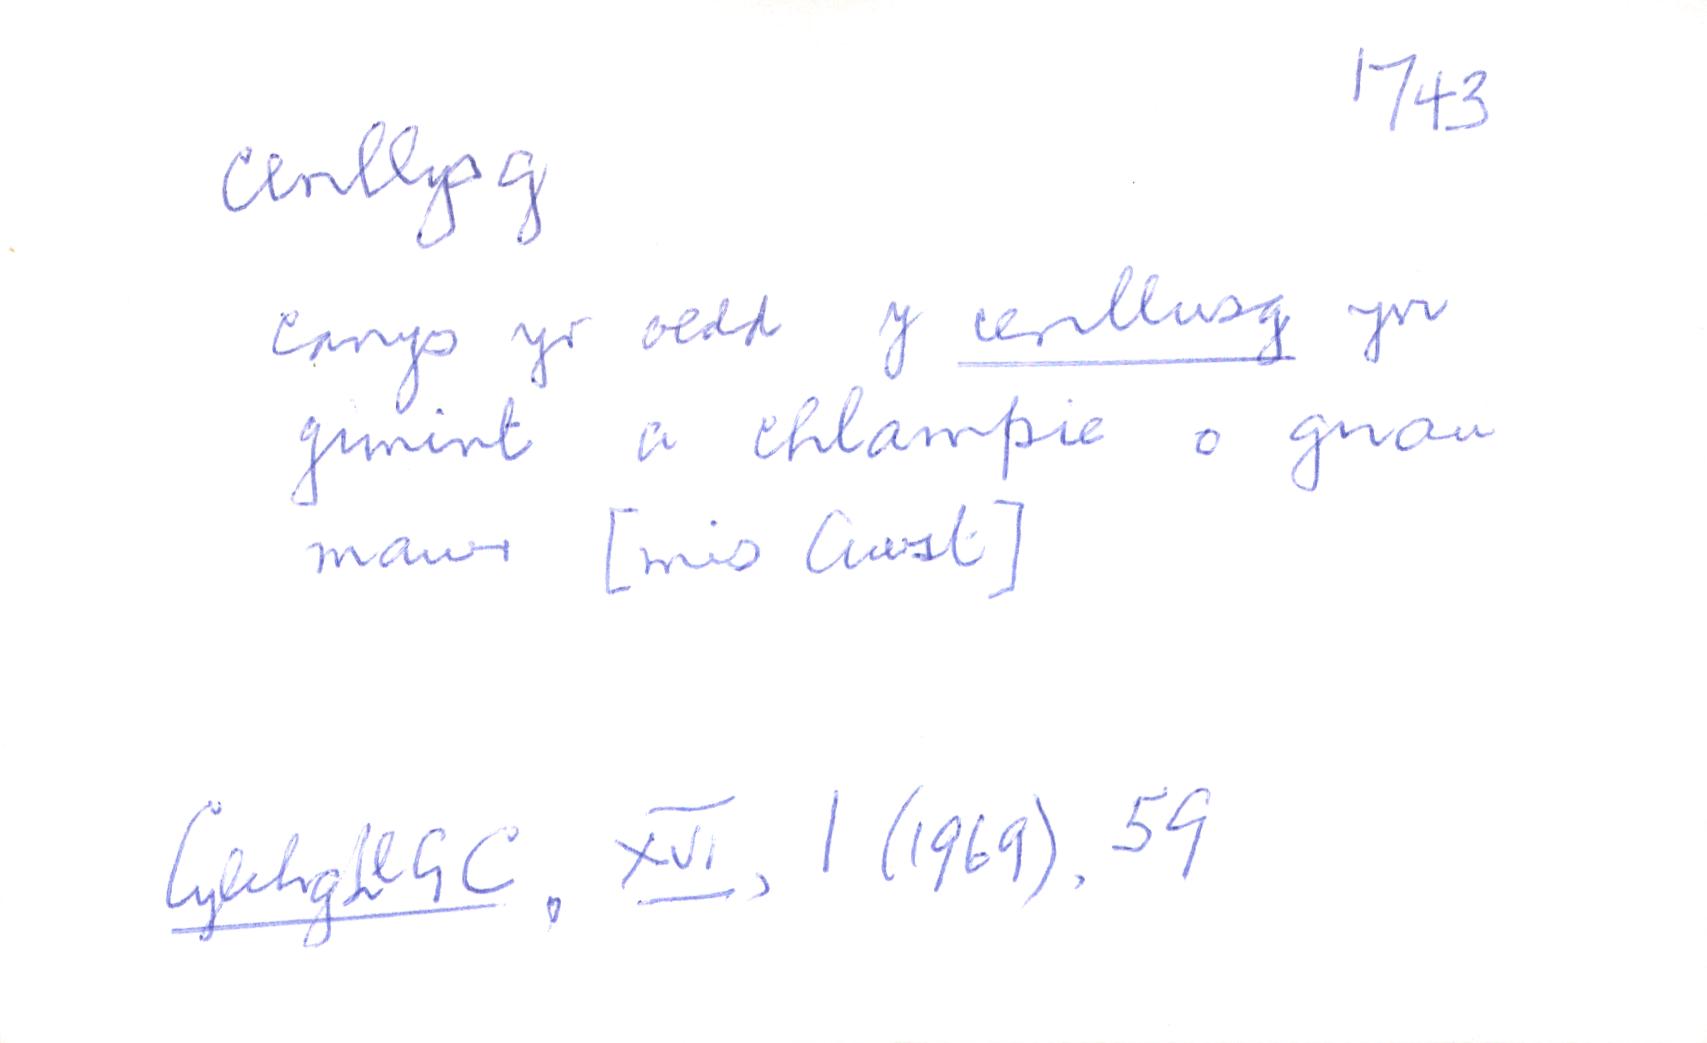 1743
cenllysg
canys yr oedd y cenllusg yn
gimint a chlampie o gnau
mawr [mis Awst]
CylchgLlGC, XVI, 1 (1969), 59